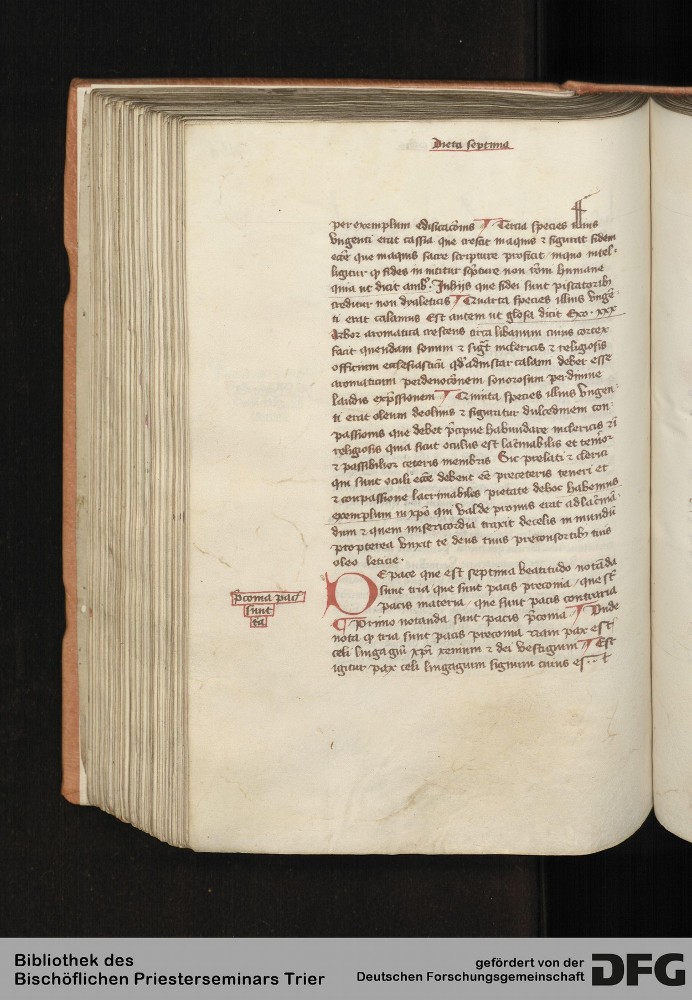 Dieta septima
per exemplum edificacōnis Tercia species illius
vngenti erat cassia que crescit in aquis ⁊ figurat fidem
que in aquis sacre scripture proficit in quo intel-
ligitur ꝙ fides innititur scpture non rōm humane
quia ut dicit amb. In hijs que fidei sunt piscatorib
creditur non dyaleticis Quarta species illius vnge-
ti erat calamus Est autem ut glosa dicit Exo. xxx
Arbor aromatica crescens circa libanum cuius cortex
facit quendam sonum ⁊ in clericis ⁊ religiosis
officium ecclesiasticū qd ad instar calami debet esse
aromaticum per sonorosum per diuine
laudis expssionem Quinta species illius vngen-
ti erat oleum de oliuis ⁊ figuratur dulcedinem con-
passionis que debet pcipue habundare in clericis ⁊ ī
religiosis quia sicut oculus est lacmabilis et tenior
⁊ passibilior ceteris membris Sic prelati ⁊ clerici
qui sunt oculi debent ēē pre ceteris teneri et
⁊ conpassione lacrimabiles pietate de hoc habemus
exemplum in xpo qui valde pronus erat ad lacma-
dum ⁊ quem misericordia traxit de celis in mundū
propterea vnxit te deus tuus pre consortib tuis
oleo leticie.
De pace que est septima beatitudo notāda
sunt tria que sunt pacis preconia / que st
pacis materia / que sunt pacis contraria
Primo notanda sunt pacis pconia Vnde
nota ꝙ tria sunt pacis preconia pax est
celi xpi xenium ⁊ dei vestigium Est
igitur pax celi signum cuius
pconia pacis
sunt
ta
Bibliothek des
Bischöflichen Priesterseminars Trier
gefördert von der
Deutschen Forschungsgemeinschaft
DFG